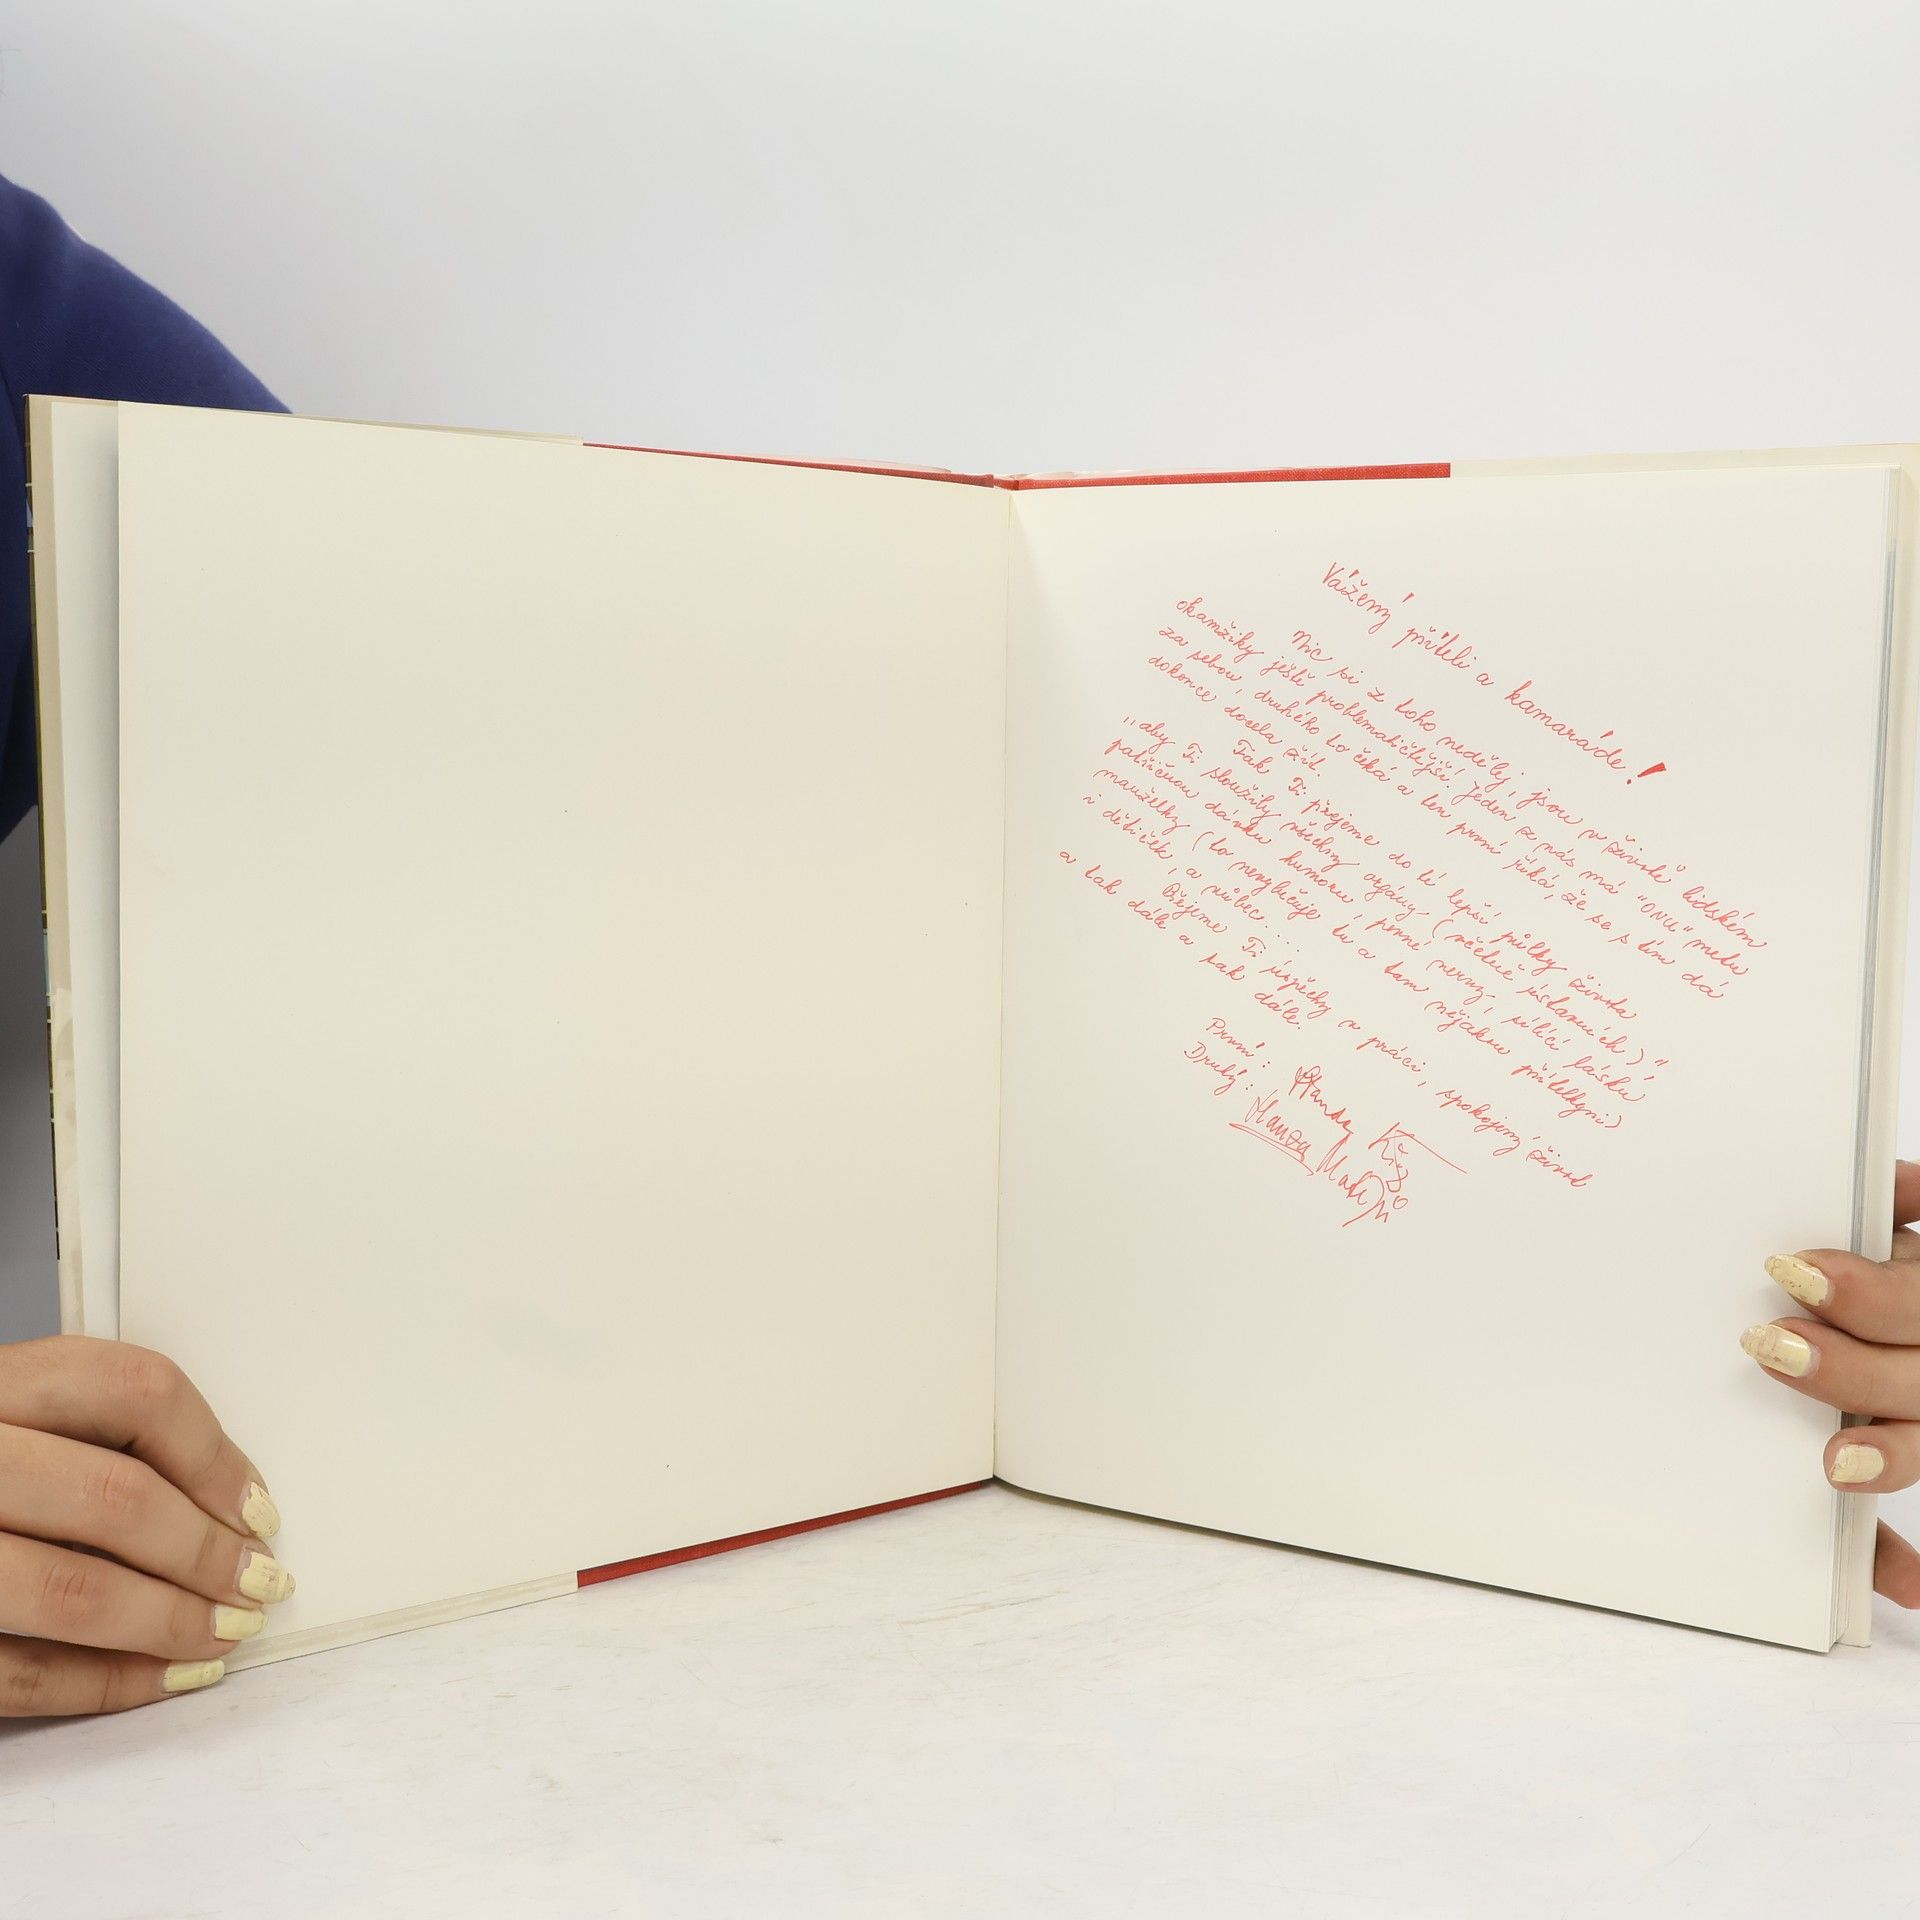 Vážený příteli a kamaráde!
Nic si z toho nedělej, jsou v životě lidském
okamžiky ještě problematičtější. Jeden z nás má "ONU" metu
za sebou, druhého to čeká a ten první říká, že se s tím dá
dokonce docela žít.
Tak Ti přejeme do té lepší půlky života
"aby Ti sloužily všechny orgány (včetně ústavních)"
patřičnou dávku humoru, pevné nervy, sílící lásku
manželky (to nevylučuje tu a tam nějakou přítelkyni)
i dětiček, a vůbec....
Přejeme Ti úspěchy v práci, spokojený život
a tak dále a tak dále.
První: Standa
Druhý: Honza